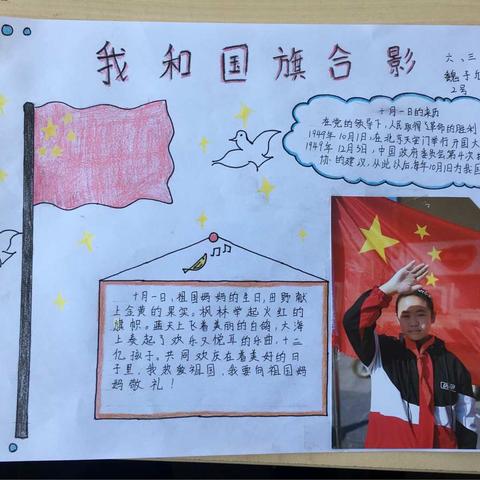 我和国旗合影
六、三
魏子
2号
十月一日的来历
在党的领导下,人民取得了革命的胜利
1949年10月1日,在北京天安门举行开国大
1949年12月3日,中国政府委员会第4次
协的建议,从此以后,每年10月1日为我国
十月一日,祖国妈妈的生日,田野献
上金黄的果实。枫林举起火红的
旗帜。蓝天上飞着美丽的白鸽,大海
上奏起了欢乐又悦耳的乐曲,十二
亿孩子。共同欢庆在着美好的日
子里,我热爱祖国,我要向祖国妈
妈敬礼!